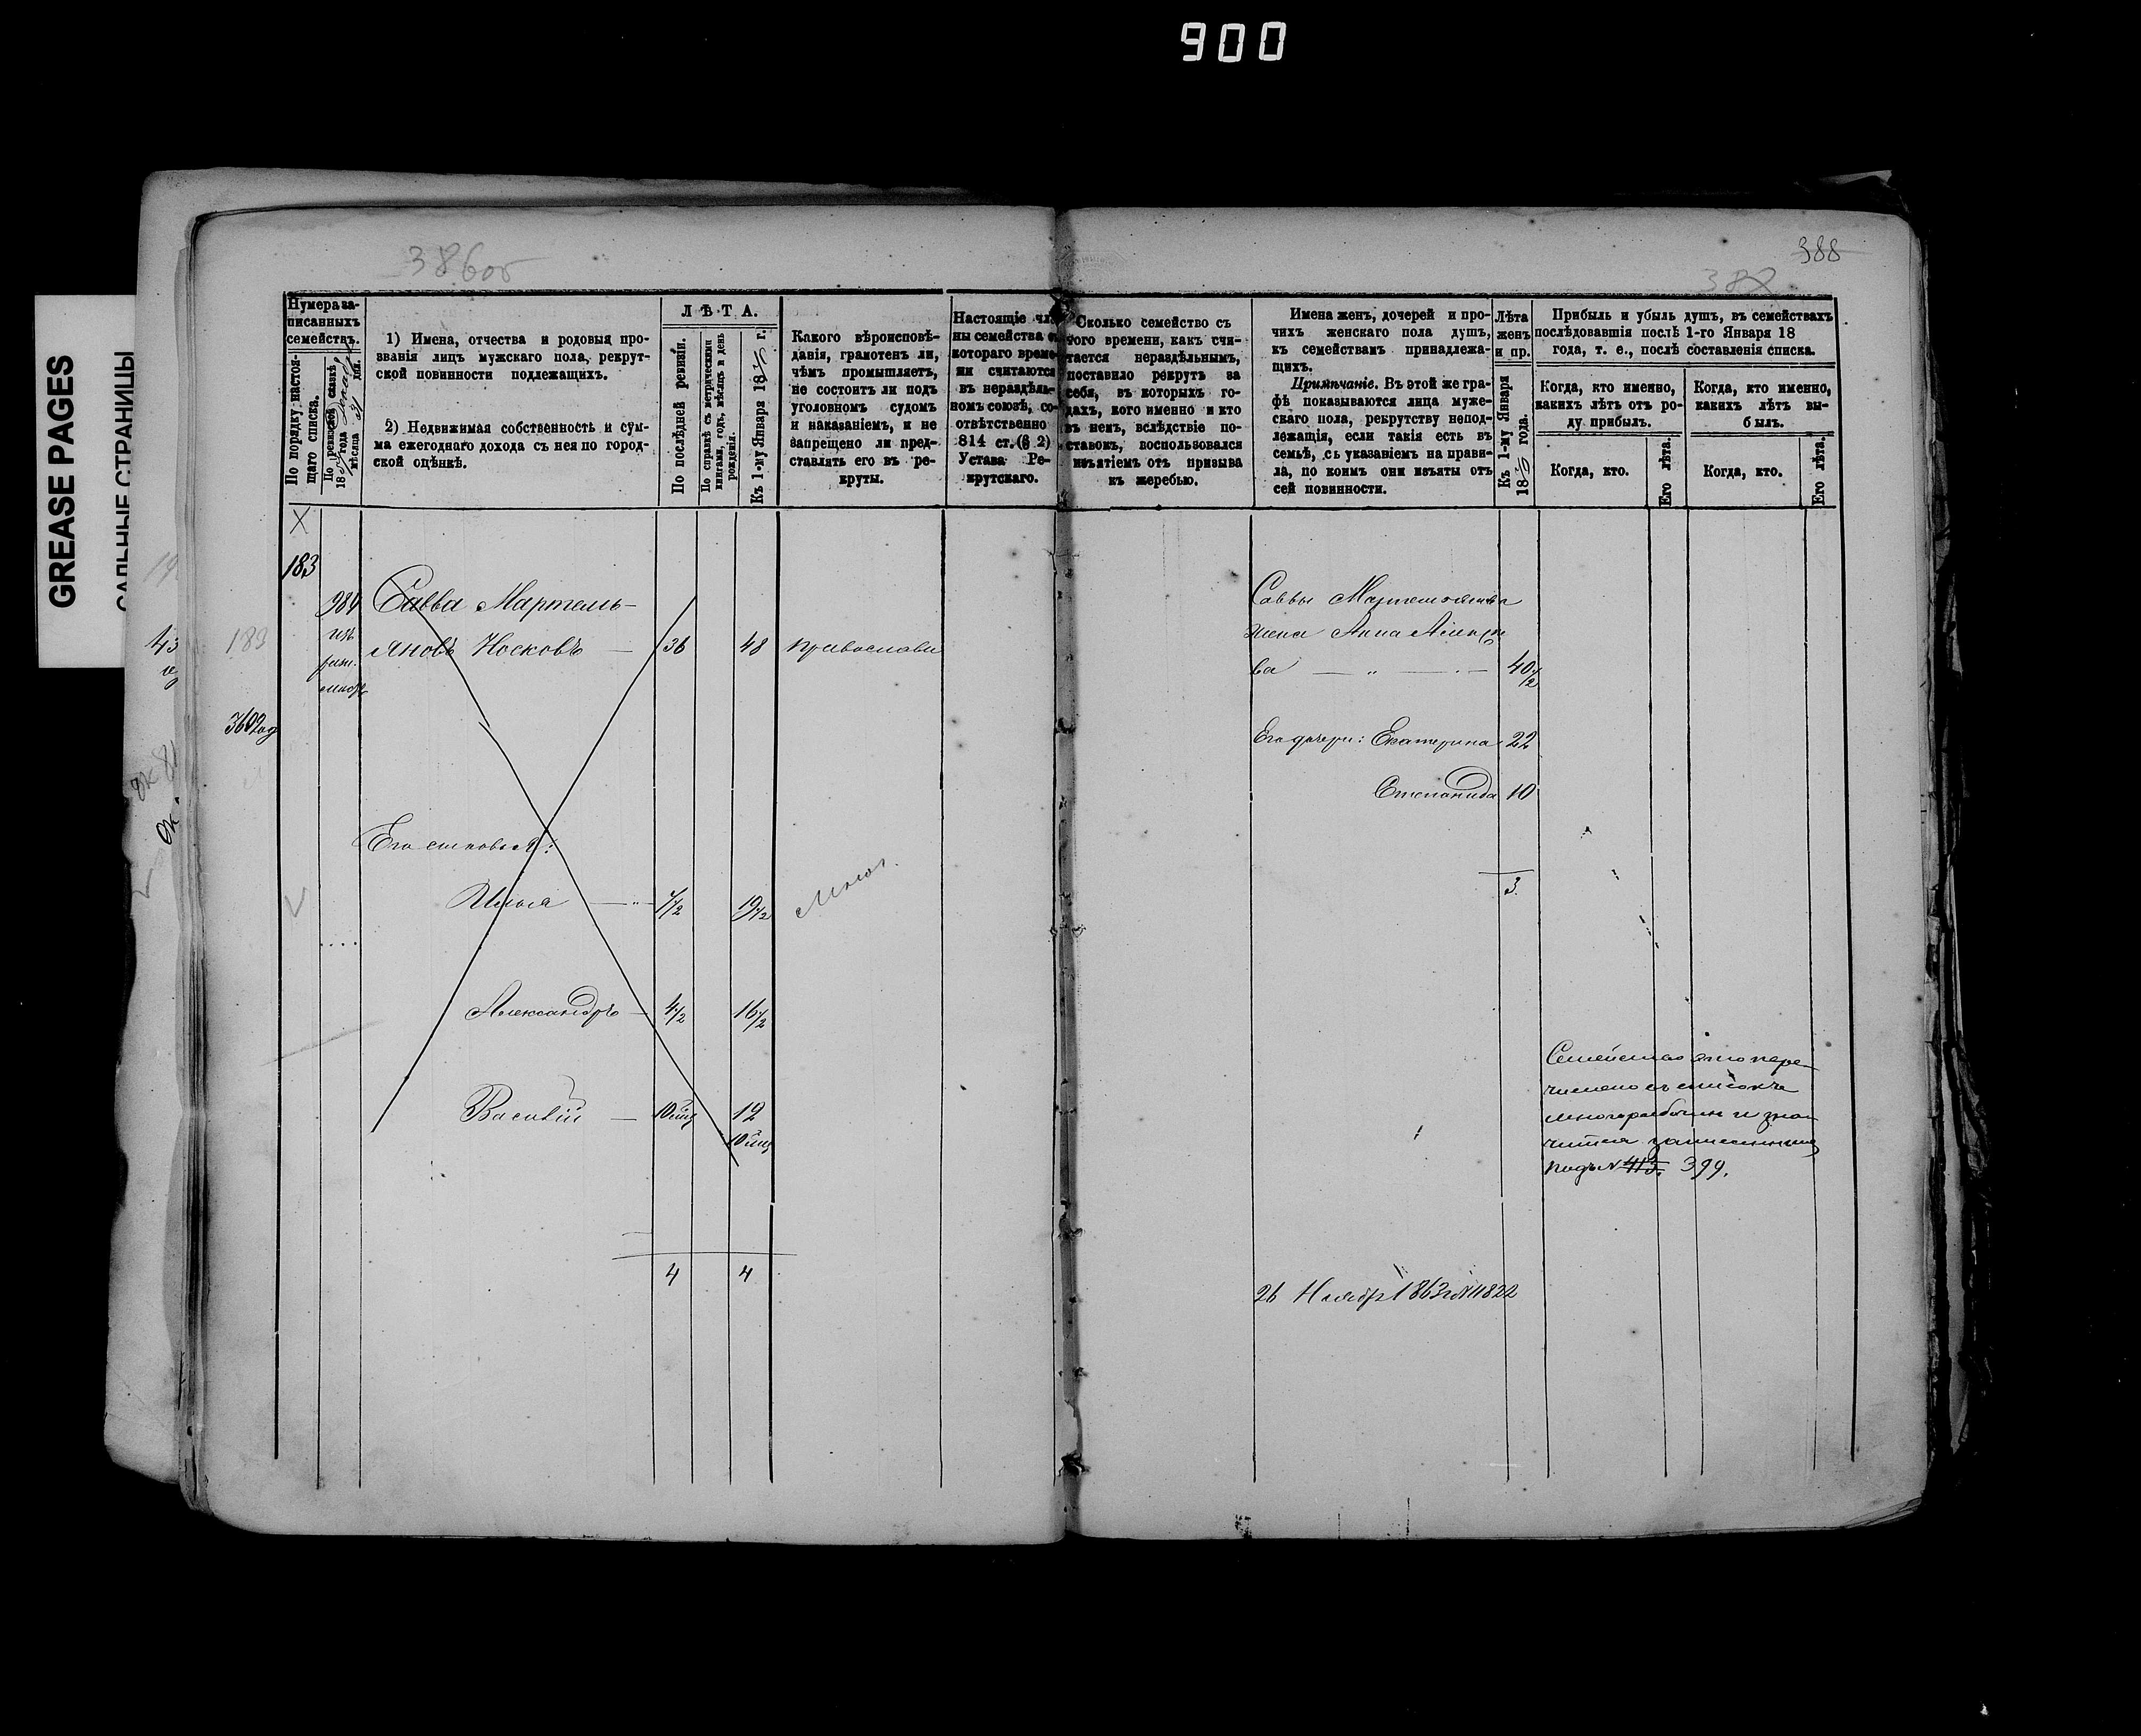 900
GREASE PAGES
САЛЬНЫЕ СТРАНИЦЫ
386об
388
Нумера за-
писанныхъ
семействъ.
По порядку настоя-
щаго списка.
По ревизской сказкѣ
18 года
мѣсяца дня.
1) Имена, отчества и родовыя про-
званія лицъ мужскаго пола, рекрут-
ской повинности подлежащихъ.
2) Недвижимая собственность и сум-
ма ежегоднаго дохода съ нея по город-
ской оцѣнкѣ.
ЛѢТА.
По послѣдней ревизіи.
По справкѣ съ метрическими
книгами, годъ, мѣсяцъ и день
рожденія.
Къ 1-му Января 18 г.
Какого вѣроисповѣ-
данія, грамотенъ ли,
чѣмъ промышляетъ,
не состоитъ ли подъ
уголовномъ судомъ
и наказаніемъ, и не
запрещено ли пред-
ставлять его въ ре-
круты.
Настоящіе чле
ны семейства с
котораго време-
ни считаются
въ нераздѣль-
номъ союзѣ, со-
отвѣтственно
814 ст. (§ 2)
Устава Ре-
крутскаго.
Сколько семейство съ
того времени, какъ счи-
тается нераздѣльнымъ,
поставило рекрутъ за
себя, въ которыхъ го-
дахъ, кого именно и кто
въ немъ, вслѣдствіе по-
ставокъ, воспользовался
изъятіемъ отъ призыва
къ жеребью.
Имена женъ, дочерей и про-
чихъ женскаго пола душъ,
къ семействамъ принадлежа-
щихъ.
Примѣчаніе. Въ этой же гра-
фѣ показываются лица муже-
скаго пола, рекрутству непод-
лежащія, если такія есть въ
семьѣ, съ указаніемъ на прави-
ла, по коимъ они изъяты отъ
сей повинности.
Лѣта
женъ
и пр.
Къ 1-му Января
18 года.
Прибыль и убыль душъ, въ семействахъ
послѣдовавшія послѣ 1-го Января 18
года, т. е., послѣ составленія списка.
Когда, кто именно,
какихъ лѣтъ отъ ро-
ду прибылъ.
Когда, кто.
Его лѣта.
Когда, кто именно,
какихъ лѣтъ вы-
былъ.
Когда, кто.
Его лѣта.
183
984 Савва Мартемь-
яновъ Носковъ — 36 48 православн
183
Его сыновья:
Илья 7½ 19½
Александръ 4½ 16½
Василій — 10 мѣц 12
10 мѣц
4 4
Саввы Мартемьянова
жена Анна
ва 40½
Его дочери: Екатерина 22
Степанида 10
3
Семейство это пере-
числено въ списокъ
многорабочихъ и зна-
чится записаннымъ
подъ № 413. 399.
26 Ноября 1863 г № 11822